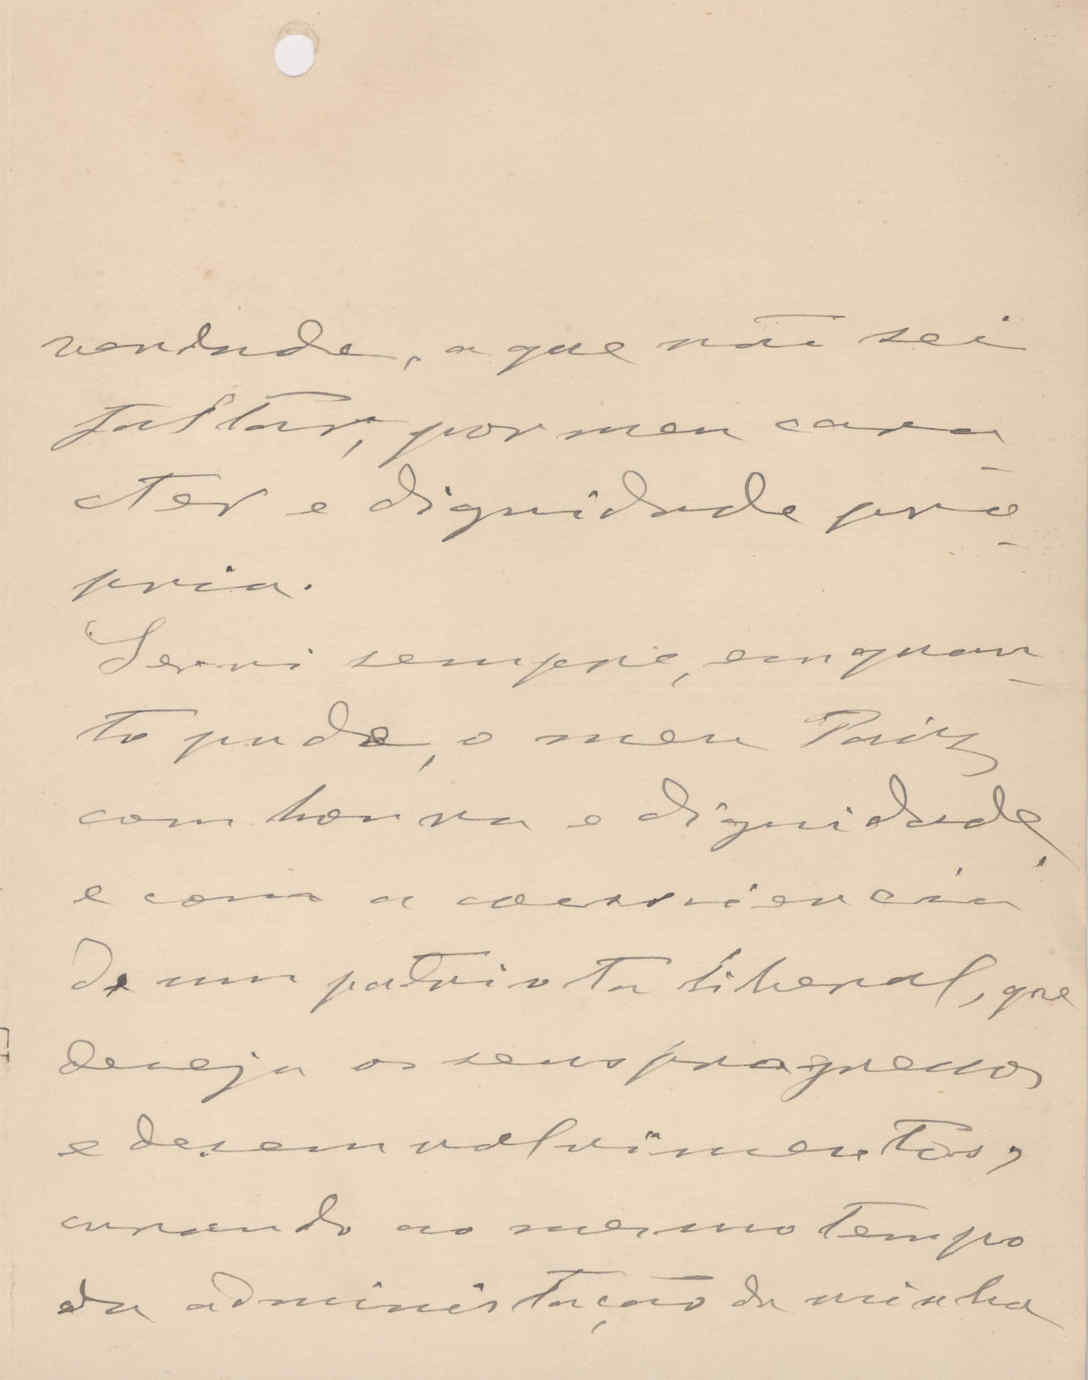 verdade, a que não sei
faltar, por meu cara-
cter e dignidade pro-
pria.
Servi sempre, emquan-
to pude, o meu Paiz
com honra e dignidade,
e com a consciencia
de um patriota liberal, que
deseja os seus progressos
e desemvolvimentos,
curando ao mesmo tempo
da administação da minha